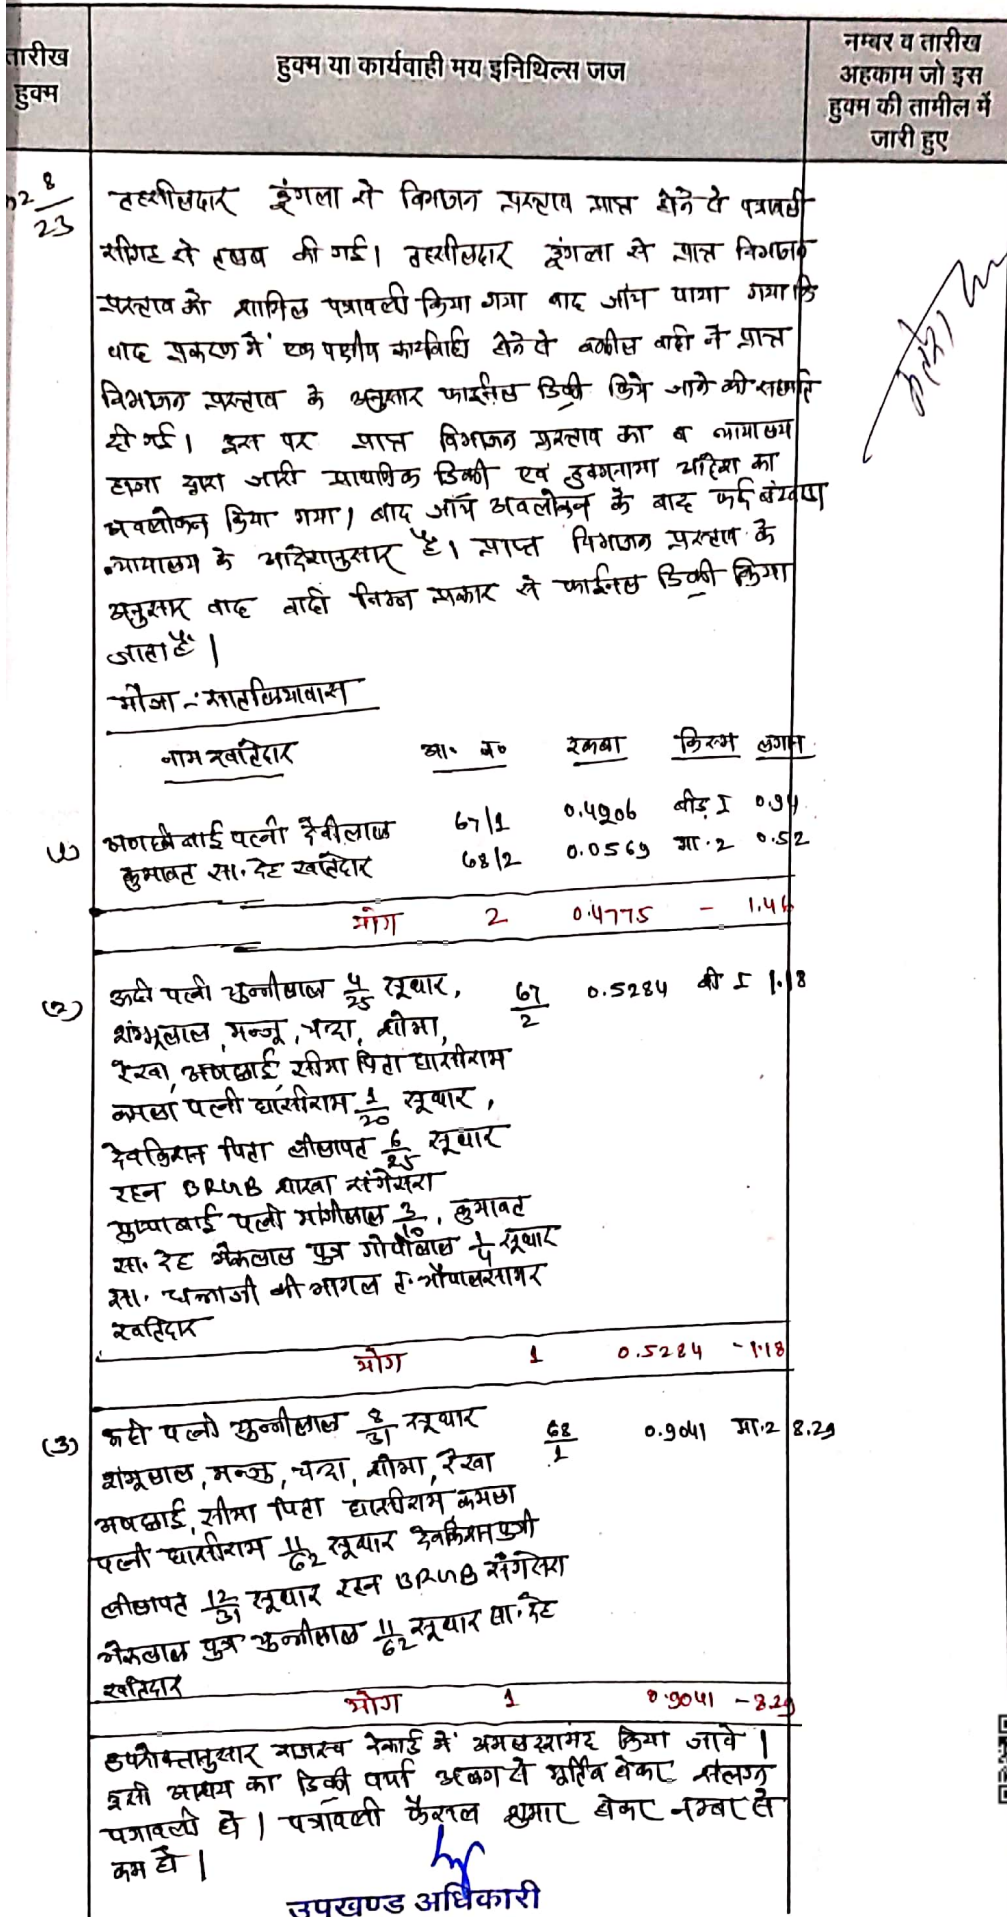 तारीख हुक्म
हुक्म या कार्यवाही मय इनिथिल्स जज
नम्बर व तारीख
अहकाम जो इस
हुक्म की तामील में
जारी हुए
2 8/23
तहसीलदार डूंगला से विभाजन प्रस्ताव प्राप्त होने से पत्रावली
सीगह से तलब की गई। तहसीलदार डूंगला से प्राप्त विभाजन
प्रस्ताव को शामिल पत्रावली किया गया बाद जांच पाया गया कि
वाद प्रकरण में एक पक्षीय कार्यवाही होने से वकील वादी ने प्राप्त
विभाजन प्रस्ताव के अनुसार फाईनल डिक्री किये जाने की सहमति
दी गई। इस पर प्राप्त विभाजन प्रस्ताव का व न्यायालय
हाजा द्वारा जारी प्राथमिक डिक्री एवं हुक्मनामा आदेश का
अवलोकन किया गया। बाद जांच अवलोकन के बाद फर्द बंटवारा
न्यायालय के आदेशानुसार है। प्राप्त विभाजन प्रस्ताव के
अनुसार वाद वादी निम्न प्रकार से फाईनल डिक्री किया
जाता है।
मौजा :- सातकियावास
नाम खातेदार आ. नं० रकबा किस्म लगान
(1) पत्नी देवीलाल 67/1 0.4206 बीड़ I 0.94
कुमावत सा. देह खातेदार 68/2 0.0569 मा.2 0.52
योग 2 0.4775 - 1.46
(2) पत्नी चुन्नीलाल 4/25 सूथार, 67/2 0.5284 बी I 1.18
शम्भूलाल, मन्जू, चन्दा, शोभा,
रेखा, सीमा पिता घासीराम
कमला पत्नी घासीराम 1/20 सूथार,
देवकिशन पिता लीलापत 6/25 सूथार
रहन BRGB शाखा संगेसरा
पुष्पाबाई पत्नी मांगीलाल 3/10, कुमावत
सा. देह भैरूलाल पुत्र गोपीलाल 1/4 सूथार
सा. की भागल त. भोपालसागर
खातेदार
योग 1 0.5284 - 1.18
(3) पत्नी चुन्नीलाल 8/31 सूथार 68/1 0.9041 मा.2 8.29
शंभूलाल, मन्जू, चन्दा, शोभा, रेखा
सीमा पिता घासीराम, कमला
पत्नी घासीराम 11/62 सूथार देवकिशन पुत्री
लीलापत 12/31 सूथार रहन BRGB संगेसरा
भैरूलाल पुत्र चुन्नीलाल 11/62 सूथार सा. देह
खातेदार
योग 1 0.9041 - 8.29
उपरोक्तानुसार राजस्व रेकार्ड में अमल दरामद किया जावे।
इसी आशय का डिक्री पर्चा अलग से मुर्तिब होकर संलग्न
पत्रावली हो। पत्रावली फैसल शुमार होकर नम्बर से
कम हो।
उपखण्ड अधिकारी